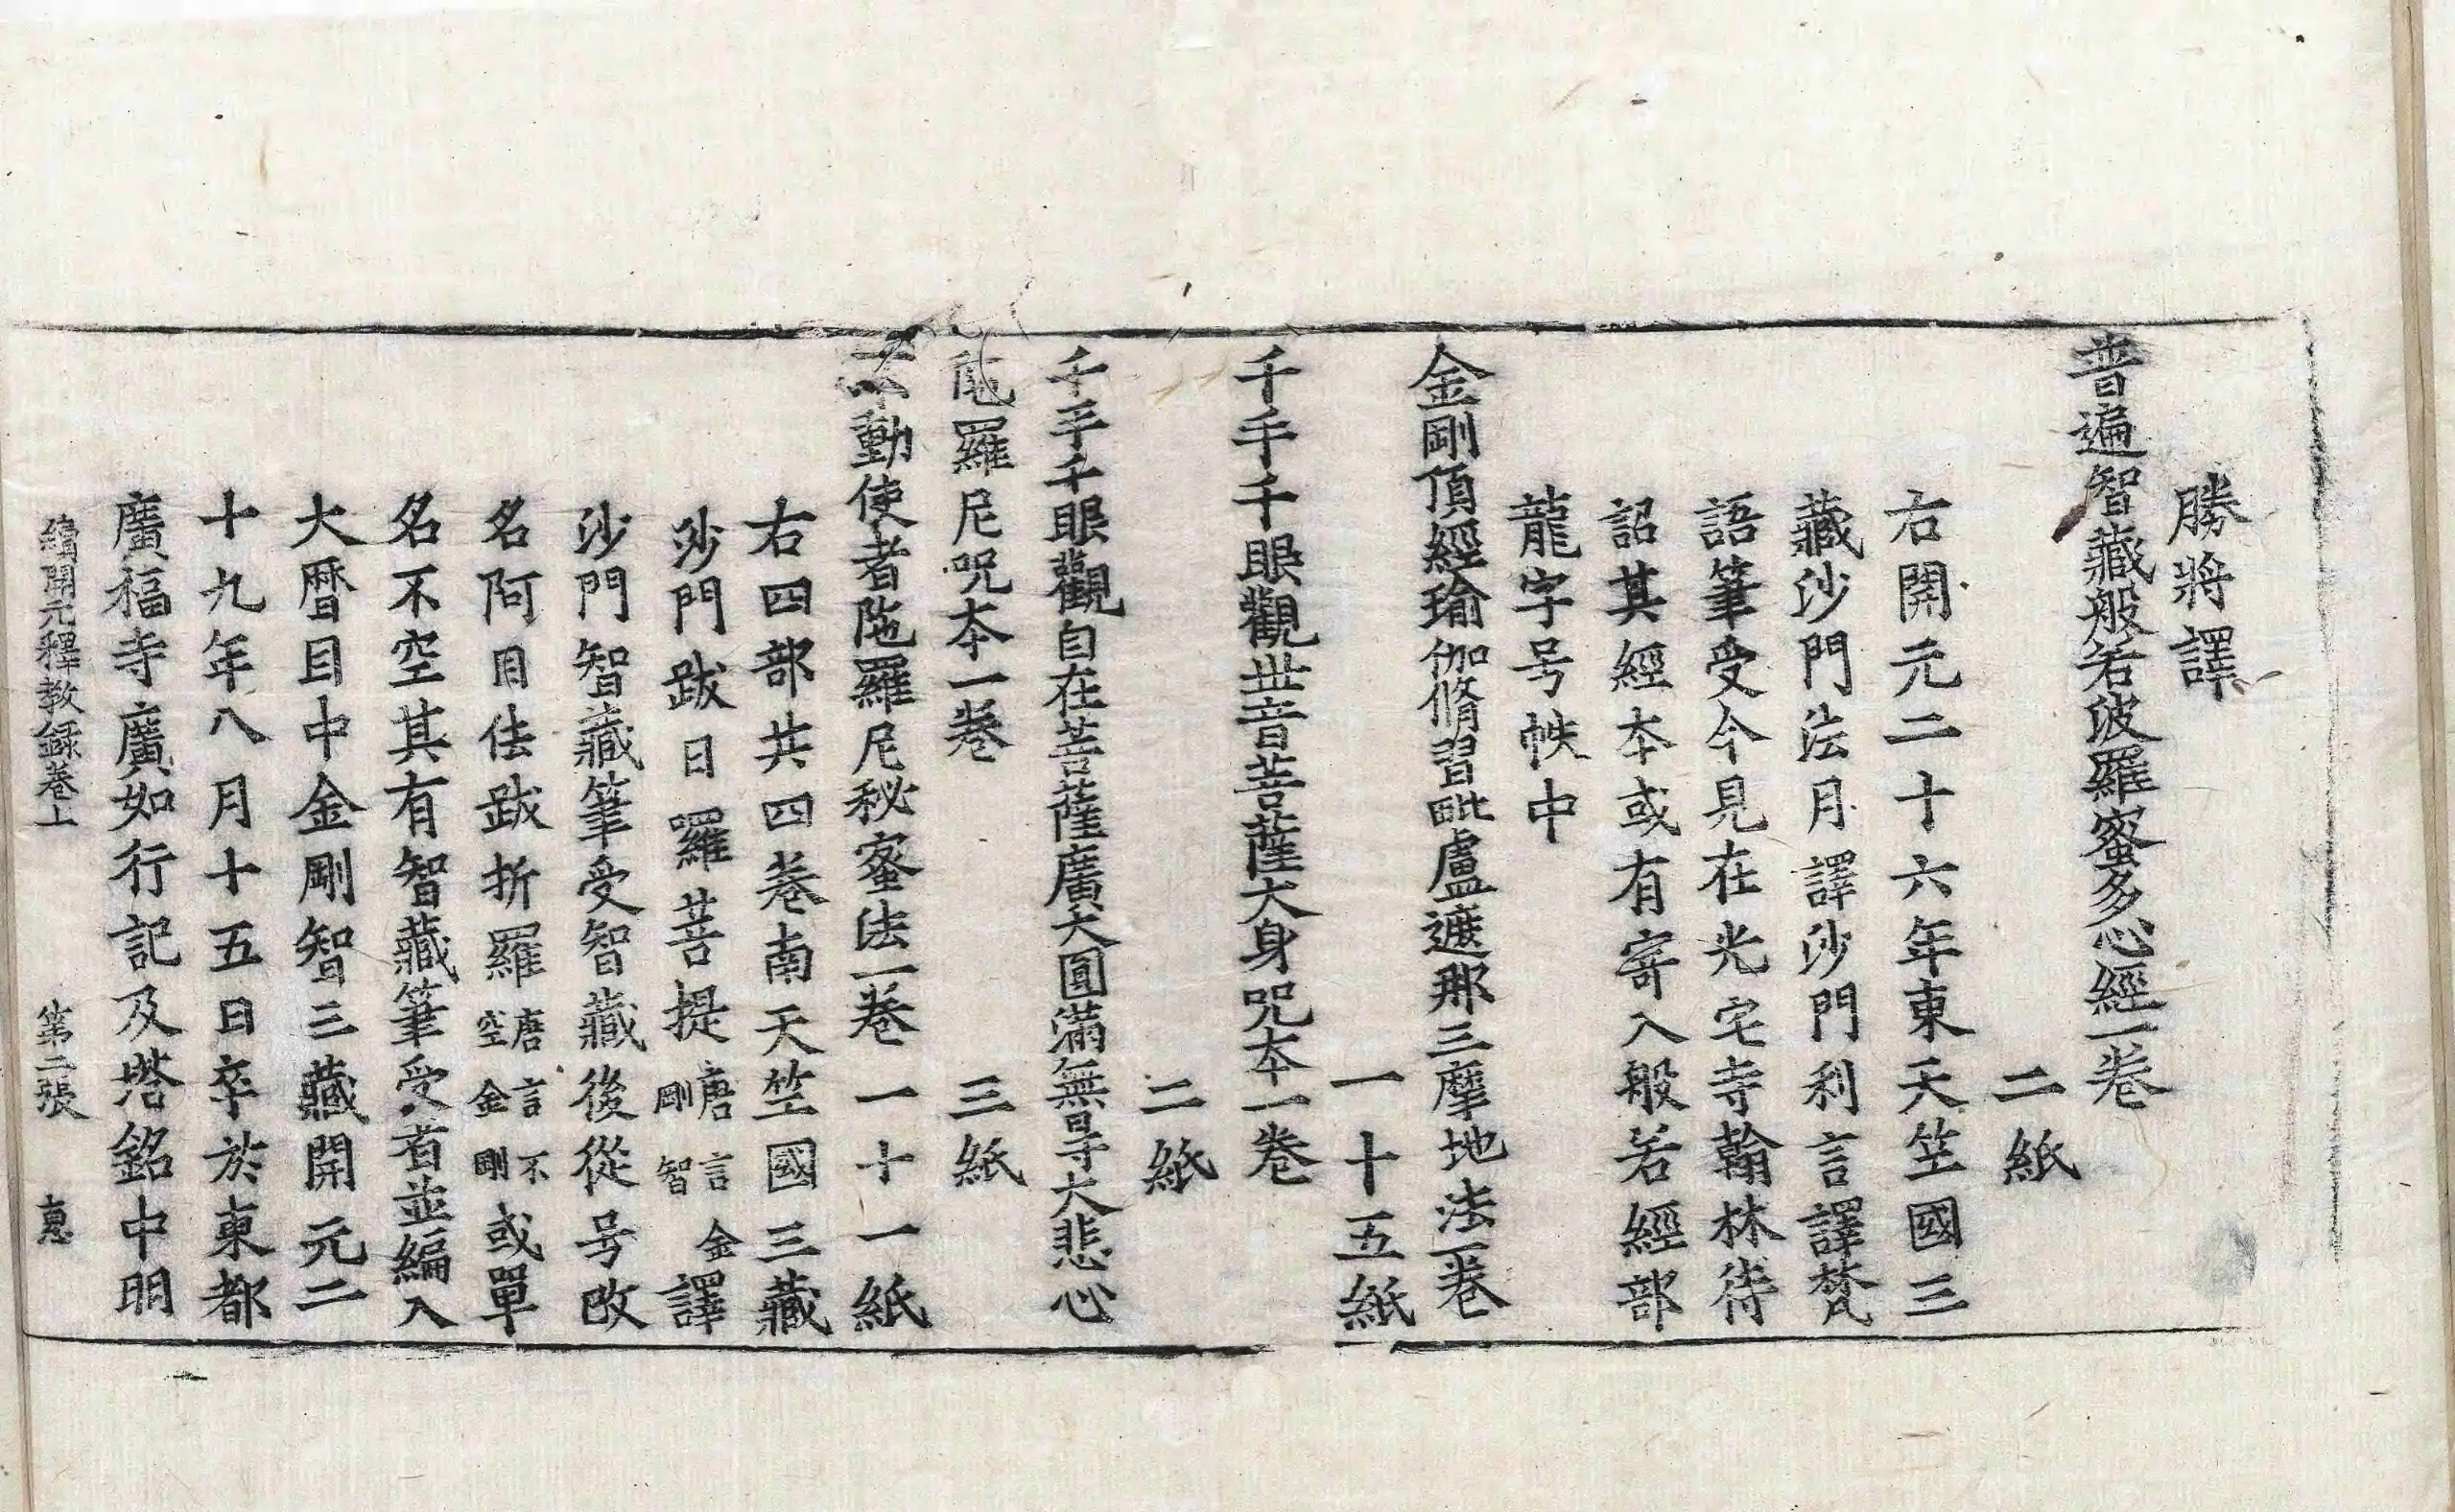 勝將譯
普遍智藏般若波羅蜜多心經一卷
二紙
右開元二十六年東天竺國三
藏沙門法月譯沙門利言譯梵
語筆受今見在光宅寺翰林待
詔其經本或有寄入般若經部
龍字号帙中
金剛頂經瑜伽脩習毗盧遮那三摩地法一卷
一十五紙
千手千眼觀世音菩薩大身咒本一卷
二紙
千手千眼觀自在菩薩廣大圓滿無㝵大悲心
陁羅尼咒本一卷　三紙
不動使者陁羅尼秘蜜法一卷　一十一紙
右四部共四卷南天竺國三藏
沙門跋日羅菩提唐言金剛智譯
沙門智藏筆受智藏後從号改
名阿目佉跋折羅唐言不空金剛或單
名不空其有智藏筆受者並編入
大曆目中金剛智三藏開元二
十九年八月十五日卒於東都
廣福寺廣如行記及塔銘中明
續開元釋教録卷上　第二張　惠